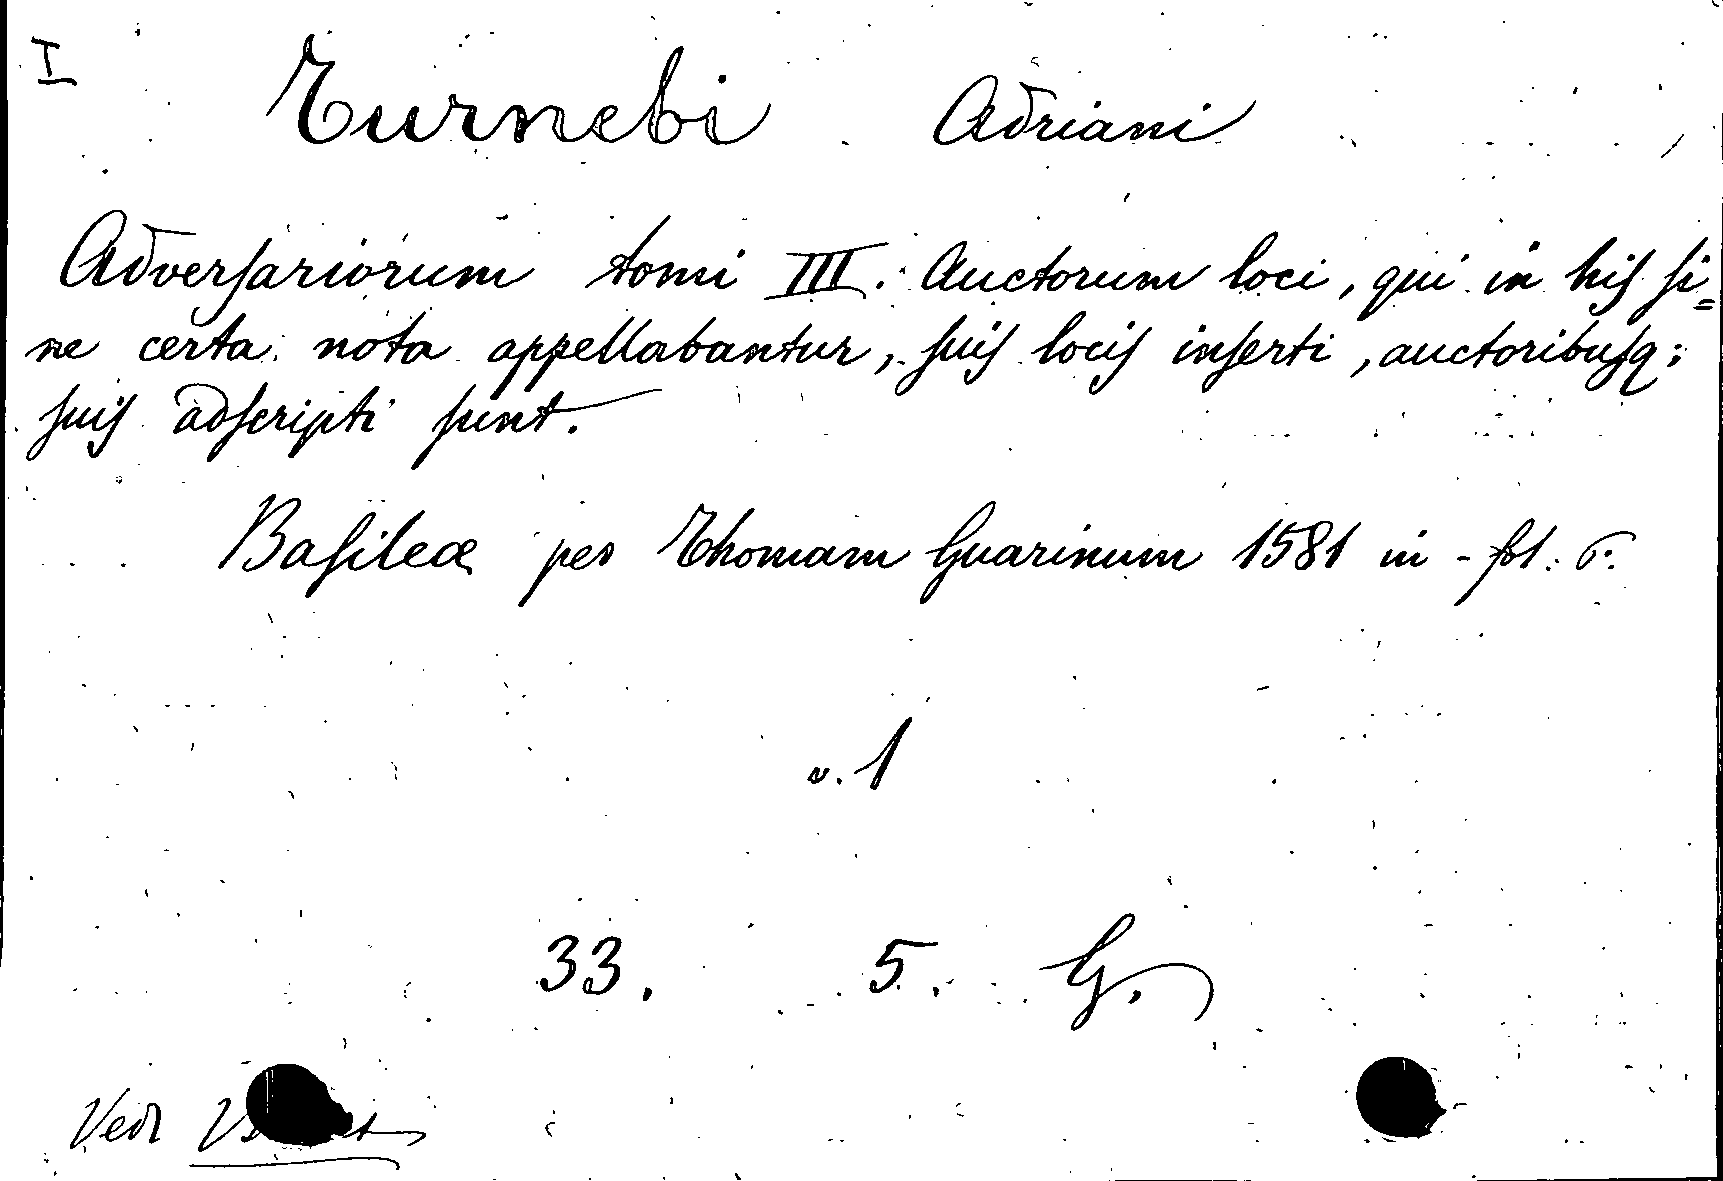 I
Turnebi Adriani
Adversariorum tomi III. Auctorum loci, qui in his si=
ne certa nota appellabantur, suis locis inserti, auctoribusq;
suis adscripti sunt.
Basileæ per Thomam Guarinum 1581 in-fol. r.
v. 1
33. 5. G.
Vedi